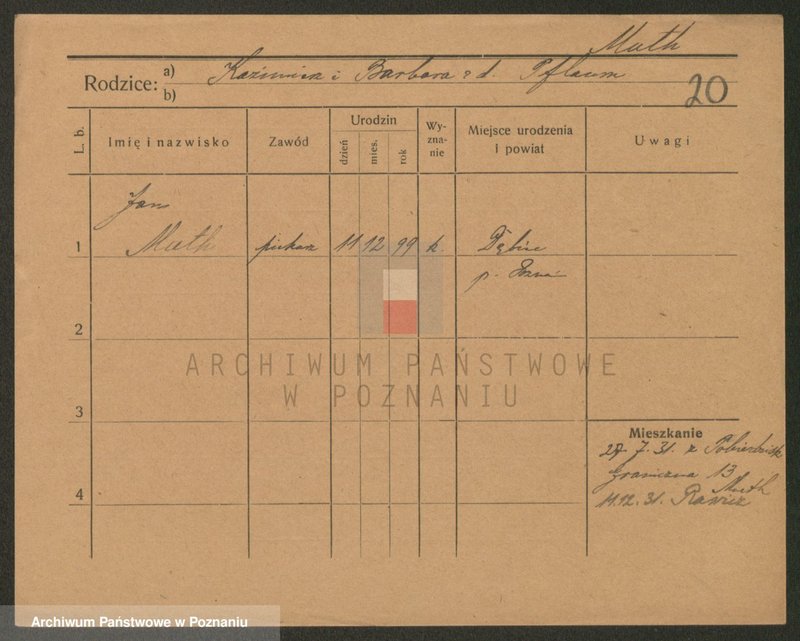 Muth
Rodzice: a) Kazimierz i Barbara z d. Pflaum
b)
20
L. b.
Imię i nazwisko
Zawód
Urodzin
dzień
mies.
rok
Wy-
zna-
nie
Miejsce urodzenia
i powiat
Uwagi
Jan
1 Muth piekarz 11 12 99 k. Dębiec
p. Poznań
2
ARCHIWUM PAŃSTWOWE
W POZNANIU
3
Mieszkanie
27. 7. 31. z Pobiedzisk
4 Graniczna 13
Muth
11.12.31. Rawicz
Archiwum Państwowe w Poznaniu